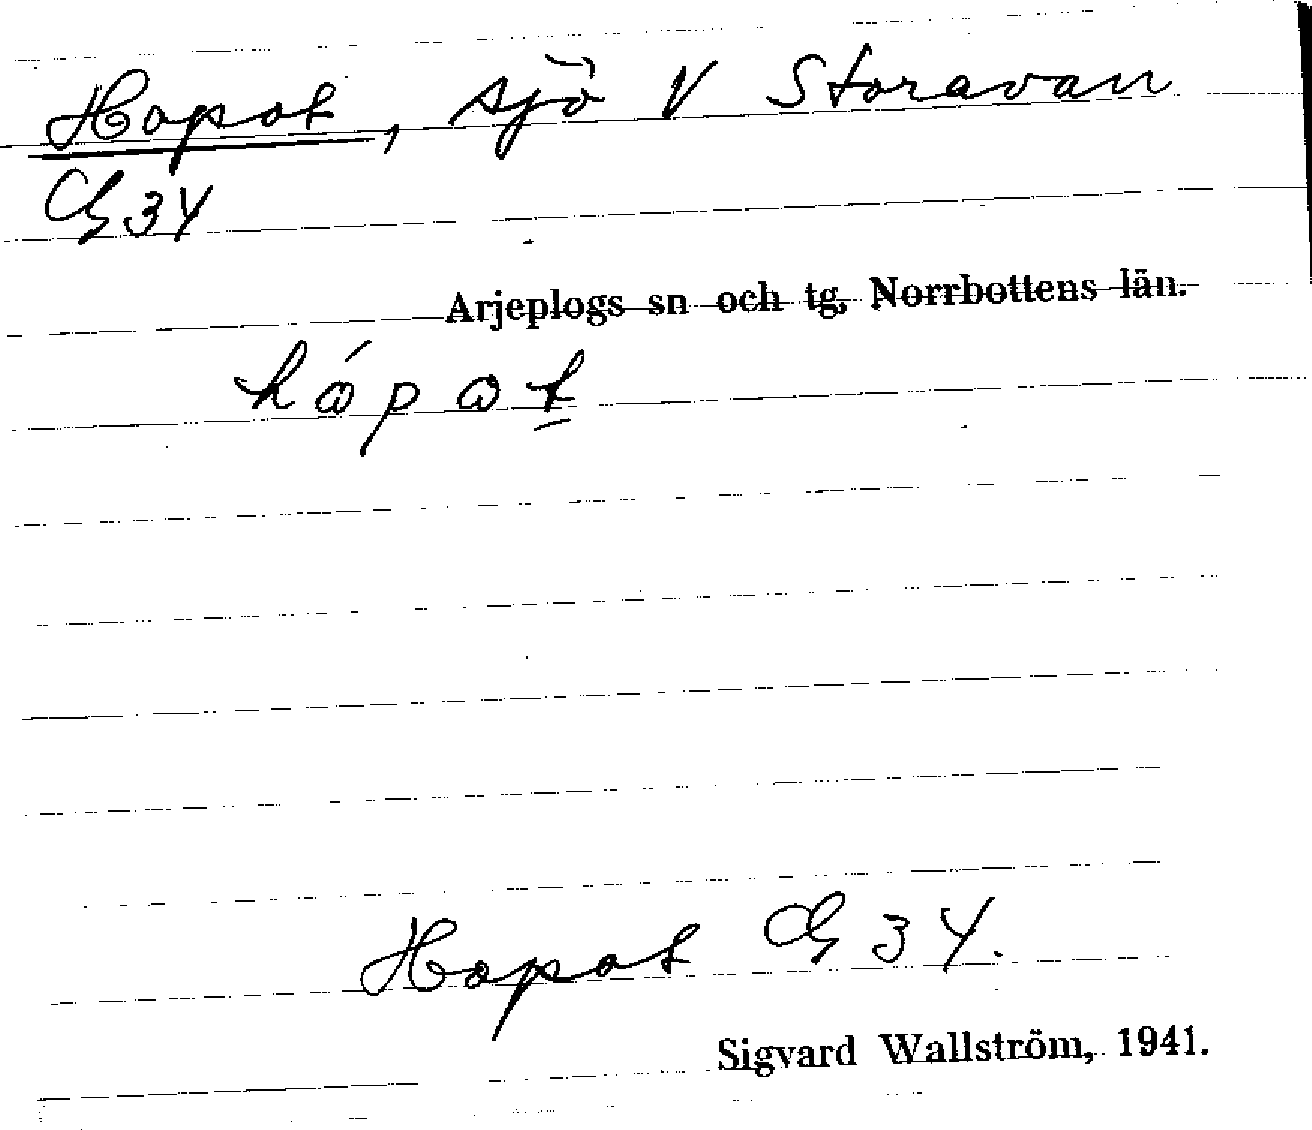 Hapat, sjö V Storavan
G34
Arjeplogs sn och tg, Norrbottens län.
hápat
Hapat G 34.
Sigvard Wallström, 1941.